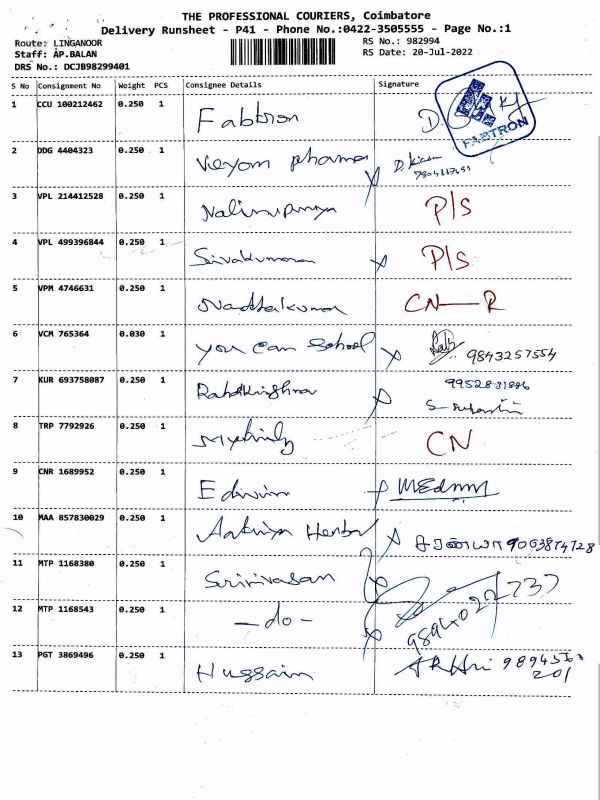 THE PROFESSIONAL COURIERS, Coimbatore
Delivery Runsheet - P41 - Phone No.:0422-3505555 - Page No.:1
Route: LINGANOOR
RS No.: 982994
Staff: AP.BALAN
RS Date: 20-Jul-2022
DRS No.: DCJB98299401
S No Consignment No Weight PCS Consignee Details Signature
1 CCU 100212462 0.250 1 Fabtron
FABTRON
2 DDG 4404323 0.250 1 pharma
3 VPL 214412528 0.250 1 P/S
4 VPL 499396844 0.250 1 Sivakumaran P/S
5 VPM 4746631 0.250 1 CN-R
6 VCM 765364 0.030 1 you can school 9843257554
7 KUR 693758087 0.250 1
8 TRP 7792926 0.250 1 CN
9 CNR 1689952 0.250 1 Edwin
10 MAA 857830029 0.250 1
11 MTP 1168380 0.250 1 Srinivasan
12 MTP 1168543 0.250 1 -do-
9894022737
13 PGT 3869496 0.250 1 Hussain